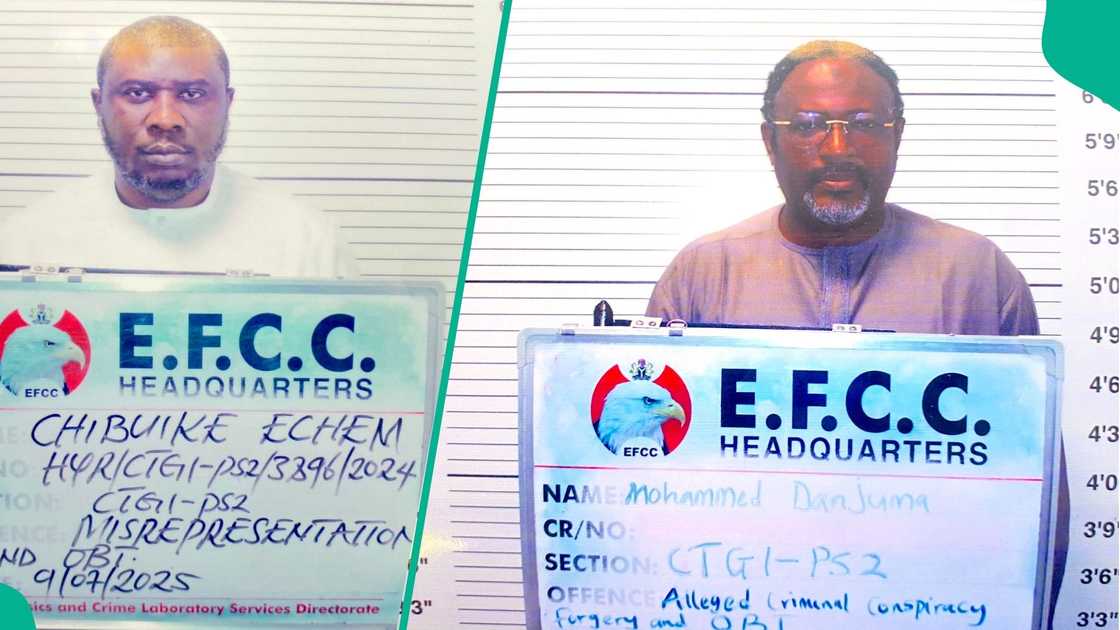 EFCC
E.F.C.C.
HEADQUARTERS
CHIBUIKE ECHEM
HQR/CTGI-PS2/3896/2024
CTGI-PS2
MISREPRESENTATION
ND OBT.
9/07/2025
sics and Crime Laboratory Services Directorate
EFCC
E.F.C.C.
HEADQUARTERS
NAME: Mohammed Danjuma
CR/NO:
SECTION: CTGI-PS2
OFFENCE: Alleged Criminal Conspiracy
Forgery and OBT
5'9"
5'6
5'3
5'0
4'9
4'6
4'3
4'0
3'9
3'6"
3'3"